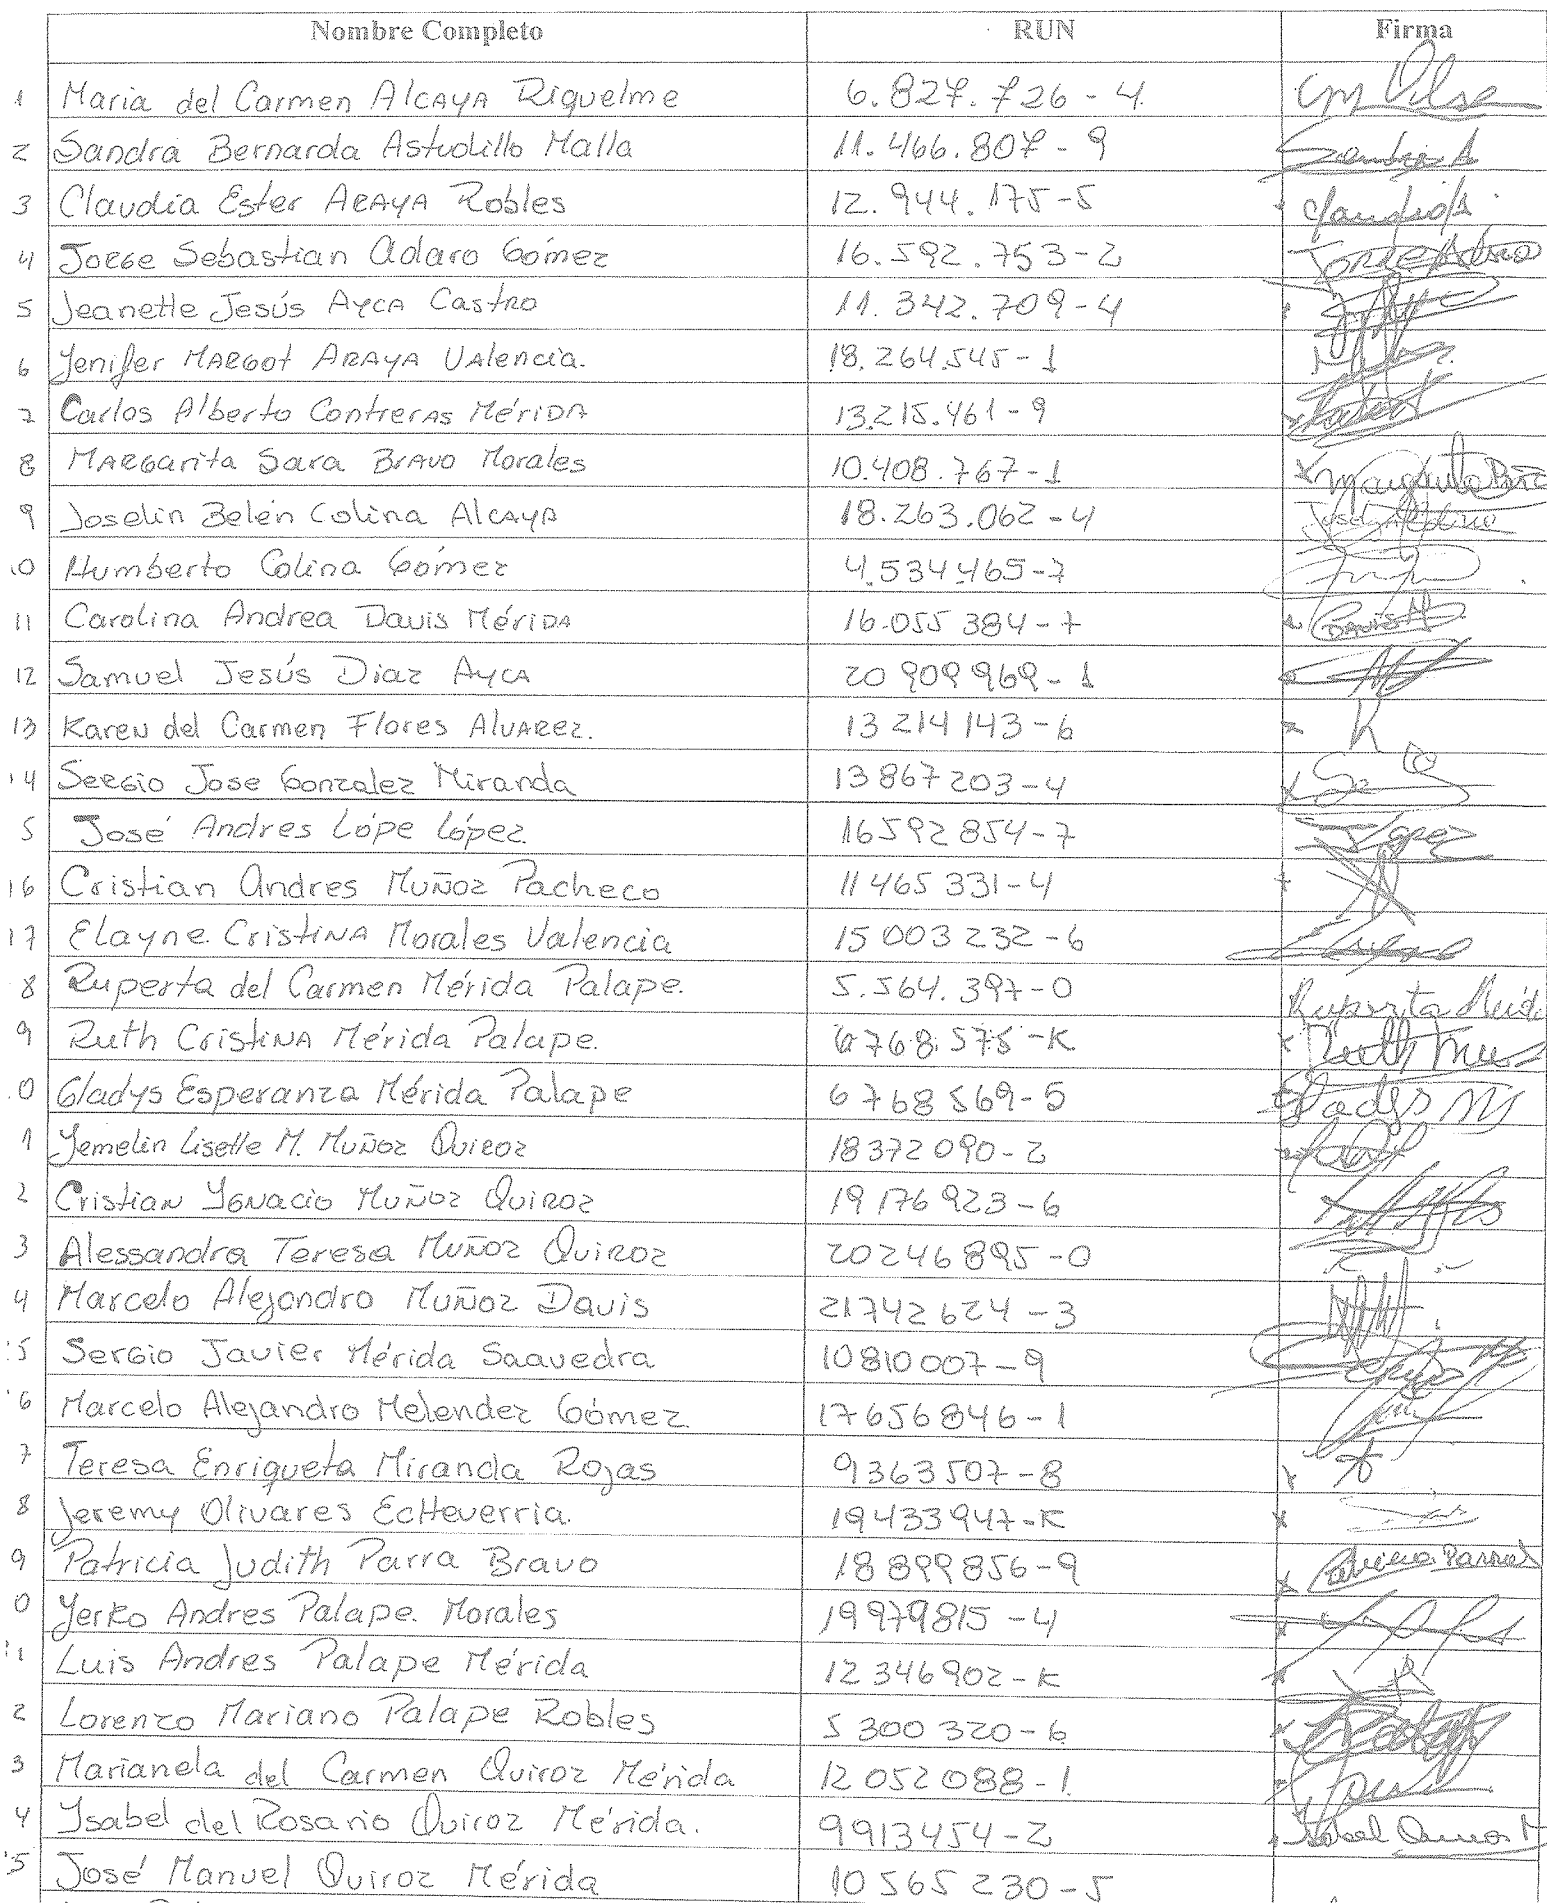 Nombre Completo RUN Firma
1 Maria del Carmen Alcaya Riquelme 6.827.726-4
2 Sandra Bernarda Astudillo Malla 11.466.807-9 Sandra A
3 Claudia Ester Araya Robles 12.944.175-5 Claudia A
4 Jorge Sebastian Adaro Gómez 16.592.753-2 Jorge Adaro
5 Jeanette Jesús Ayca Castro 11.342.709-4
6 Yenifer Margot Araya Valencia. 18.264.545-1
7 Carlos Alberto Contreras Mérida 13.215.461-9
8 Margarita Sara Bravo Morales 10.408.767-1 Margarita
9 Joselin Belén Colina Alcaya 18.263.062-4
10 Humberto Colina Gómez 4.534.465-7
11 Carolina Andrea Davis Mérida 16.055 384-7 Davis M
12 Samuel Jesús Diaz Ayca 20 909 969-1
13 Karen del Carmen Flores Alvarez. 13 214 143-6 K
14 Sergio Jose Gonzalez Miranda 13 867 203-4
5 José Andres Lópe López 16 592 854-7 J López
16 Cristian Andres Muñoz Pacheco 11 465 331-4
17 Elayne Cristina Morales Valencia 15 003 232-6
8 Ruperta del Carmen Mérida Palape. 5.564.397-0
9 Ruth Cristina Mérida Palape. 6 768.575-K Ruth
0 Gladys Esperanza Mérida Palape 6 768 569-5 Gladys M
1 Yemelin Lisette M. Muñoz Quiroz 18 372 090-2
2 Cristian Ygnacio Muñoz Quiroz 19 176 923-6
3 Alessandra Teresa Muñoz Quiroz 20 246 895-0
4 Marcelo Alejandro Muñoz Davis 21 742 624-3
5 Sergio Javier Mérida Saavedra 10 810 007-9
6 Marcelo Alejandro Melendez Gómez. 17 656 846-1
7 Teresa Enriqueta Miranda Rojas 9 363 507-8
8 Jeremy Olivares Echeverria. 19 433 947-K
9 Patricia Judith Parra Bravo 18 899 856-9 Parra
0 Yerko Andres Palape. Morales 19 979 815-4
1 Luis Andres Palape Mérida 12 346 902-K
2 Lorenzo Mariano Palape Robles 5 300 320-6
3 Marianela del Carmen Quiroz Mérida 12 052 088-1
4 Ysabel del Rosario Quiroz Mérida. 9 913 454-2
5 José Manuel Quiroz Mérida 10 565 230-5